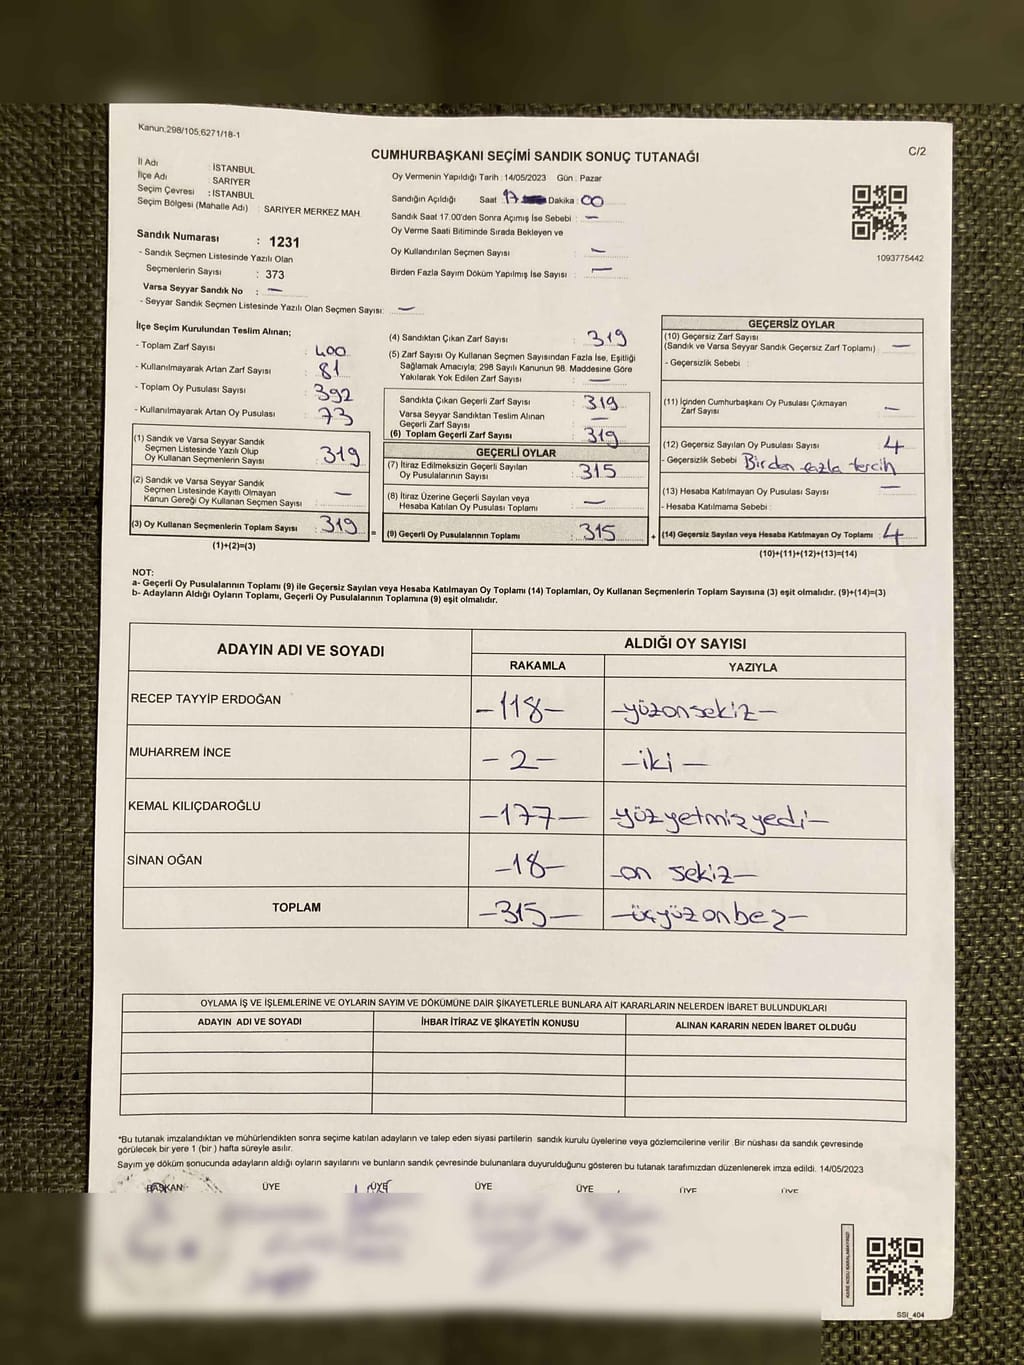 Kanun.298/105;6271/18-1
CUMHURBAŞKANI SEÇİMİ SANDIK SONUÇ TUTANAĞI
C/2
İl Adı : İSTANBUL
İlçe Adı : SARIYER
Seçim Çevresi : İSTANBUL
Seçim Bölgesi (Mahalle Adı) : SARIYER MERKEZ MAH.
Sandık Numarası : 1231
- Sandık Seçmen Listesinde Yazılı Olan
Seçmenlerin Sayısı : 373
Varsa Seyyar Sandık No : —
- Seyyar Sandık Seçmen Listesinde Yazılı Olan Seçmen Sayısı: —
Oy Vermenin Yapıldığı Tarih : 14/05/2023 Gün : Pazar
Sandığın Açıldığı Saat : 17 Dakika : 00
Sandık Saat 17.00'den Sonra Açımış İse Sebebi : —
Oy Verme Saati Bitiminde Sırada Bekleyen ve
Oy Kullandırılan Seçmen Sayısı : —
Birden Fazla Sayım Döküm Yapılmış İse Sayısı : —
1093775442
İlçe Seçim Kurulundan Teslim Alınan;
- Toplam Zarf Sayısı : 400
- Kullanılmayarak Artan Zarf Sayısı : 81
- Toplam Oy Pusulası Sayısı : 392
- Kullanılmayarak Artan Oy Pusulası : 73
(1) Sandık ve Varsa Seyyar Sandık
Seçmen Listesinde Yazılı Olup
Oy Kullanan Seçmenlerin Sayısı : 319
(2) Sandık ve Varsa Seyyar Sandık
Seçmen Listesinde Kayıtlı Olmayan
Kanun Gereği Oy Kullanan Seçmen Sayısı : —
(3) Oy Kullanan Seçmenlerin Toplam Sayısı : 319
(1)+(2)=(3)
(4) Sandıktan Çıkan Zarf Sayısı : 319
(5) Zarf Sayısı Oy Kullanan Seçmen Sayısından Fazla İse, Eşitliği
Sağlamak Amacıyla; 298 Sayılı Kanunun 98. Maddesine Göre
Yakılarak Yok Edilen Zarf Sayısı : —
Sandıkta Çıkan Geçerli Zarf Sayısı : 319
Varsa Seyyar Sandıktan Teslim Alınan
Geçerli Zarf Sayısı : —
(6) Toplam Geçerli Zarf Sayısı : 319
GEÇERLİ OYLAR
(7) İtiraz Edilmeksizin Geçerli Sayılan
Oy Pusulalarının Sayısı : 315
(8) İtiraz Üzerine Geçerli Sayılan veya
Hesaba Katılan Oy Pusulası Toplamı : —
= (9) Geçerli Oy Pusulalarının Toplamı : 315
GEÇERSİZ OYLAR
(10) Geçersiz Zarf Sayısı
(Sandık ve Varsa Seyyar Sandık Geçersiz Zarf Toplamı) : —
- Geçersizlik Sebebi :
(11) İçinden Cumhurbaşkanı Oy Pusulası Çıkmayan
Zarf Sayısı : —
(12) Geçersiz Sayılan Oy Pusulası Sayısı : 4
- Geçersizlik Sebebi : Birden fazla tercih
(13) Hesaba Katılmayan Oy Pusulası Sayısı : —
- Hesaba Katılmama Sebebi :
+ (14) Geçersiz Sayılan veya Hesaba Katılmayan Oy Toplamı : 4
(10)+(11)+(12)+(13)=(14)
NOT:
a- Geçerli Oy Pusulalarının Toplamı (9) ile Geçersiz Sayılan veya Hesaba Katılmayan Oy Toplamı (14) Toplamları, Oy Kullanan Seçmenlerin Toplam Sayısına (3) eşit olmalıdır. (9)+(14)=(3)
b- Adayların Aldığı Oyların Toplamı, Geçerli Oy Pusulalarının Toplamına (9) eşit olmalıdır.
ADAYIN ADI VE SOYADI
ALDIĞI OY SAYISI
RAKAMLA YAZIYLA
RECEP TAYYİP ERDOĞAN -118- -yüzonsekiz-
MUHARREM İNCE -2- -iki-
KEMAL KILIÇDAROĞLU -177- -yüzyetmişyedi-
SİNAN OĞAN -18- -on sekiz-
TOPLAM -315- -üçyüzonbeş-
OYLAMA İŞ VE İŞLEMLERİNE VE OYLARIN SAYIM VE DÖKÜMÜNE DAİR ŞİKAYETLERLE BUNLARA AİT KARARLARIN NELERDEN İBARET BULUNDUKLARI
ADAYIN ADI VE SOYADI İHBAR İTİRAZ VE ŞİKAYETİN KONUSU ALINAN KARARIN NEDEN İBARET OLDUĞU
*Bu tutanak imzalandıktan ve mühürlendikten sonra seçime katılan adayların ve talep eden siyasi partilerin sandık kurulu üyelerine veya gözlemcilerine verilir .Bir nüshası da sandık çevresinde
görülecek bir yere 1 (bir ) hafta süreyle asılır.
Sayım ve döküm sonucunda adayların aldığı oyların sayılarını ve bunların sandık çevresinde bulunanlara duyurulduğunu gösteren bu tutanak tarafımızdan düzenlenerek imza edildi. 14/05/2023
BAŞKAN ÜYE ÜYE ÜYE ÜYE ÜYE ÜYE
SSI_404